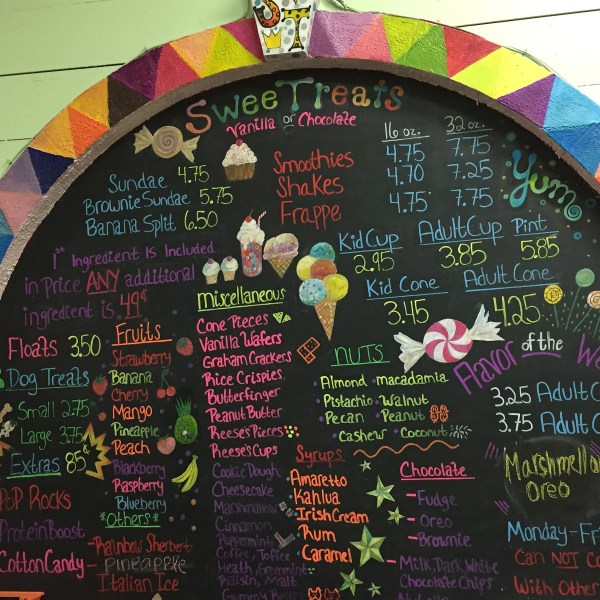 SweeTreats
Vanilla or Chocolate
16 oz. 32 oz.
Smoothies 4.75 7.75
Shakes 4.70 7.25
Frappe 4.75 7.75
Yum
Sundae 4.75
Brownie Sundae 5.75
Banana Split 6.50
1st Ingredient Is Included
in Price ANY additional
ingredient is 49¢
Kid Cup Adult Cup Pint
2.95 3.85 5.85
Kid Cone Adult Cone
3.45 4.25
Floats 3.50
Dog Treats
Small 2.75
Large 3.75
Extras 85¢
Pop Rocks
Protein Boost
Cotton Candy
Fruits
Strawberry
Banana
Cherry
Mango
Pineapple
Peach
Blackberry
Raspberry
Blueberry
*Others*
-Rainbow Sherbert
-Pineapple
Italian Ice
Miscellaneous
Cone Pieces
Vanilla Wafers
Graham Crackers
Rice Crispies
Butterfinger
Peanut Butter
Reese's Pieces
Reese's Cups
Cookie Dough
Cheesecake
Marshmallow
Cinnamon
Peppermint
Coffee, Toffee
Heath, Green Mint
Raisin, Malt
Gummy Bears
nuts
Almond • macadamia
Pistachio • Walnut
Pecan • Peanut
• Cashew • Coconut
Syrups
Amaretto
Kahlua
Irish Cream
Rum
Caramel
Chocolate
-Fudge
-Oreo
-Brownie
-Milk, Dark, White
Chocolate Chips
Flavor of the We
3.25 Adult C
3.75 Adult C
Marshmallo
Oreo
Monday-Fri
Can NOT Co
With Other